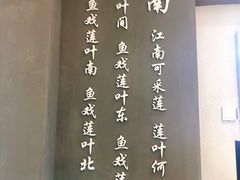 南
江南可采莲 莲叶何
叶间 鱼戏莲叶东 鱼戏莲
鱼戏莲叶南 鱼戏莲叶北